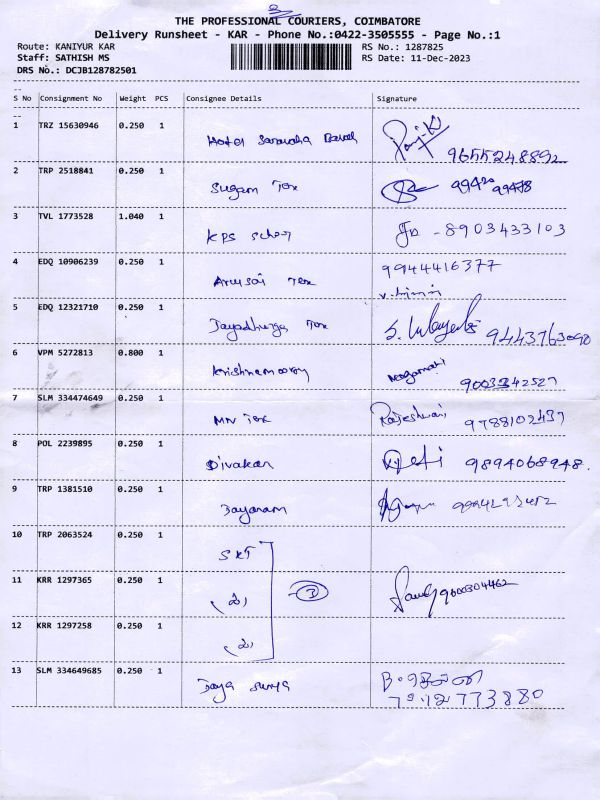 THE PROFESSIONAL COURIERS, COIMBATORE
Delivery Runsheet - KAR - Phone No.:0422-3505555 - Page No.:1
Route: KANIYUR KAR RS No.: 1287825
Staff: SATHISH MS RS Date: 11-Dec-2023
DRS No.: DCJB128782501
S No Consignment No Weight PCS Consignee Details Signature
1 TRZ 15630946 0.250 1 Hotel 9655248892
2 TRP 2518841 0.250 1 Sugam Tex 99420 99478
3 TVL 1773528 1.040 1 KPS School - 8903433103
4 EDQ 10906239 0.250 1 Arusai Tex 9944416377
5 EDQ 12321710 0.250 1 Jayadhurga Tex 9443763090
6 VPM 5272813 0.800 1 Krishnamoorthy 9003342527
7 SLM 334474649 0.250 1 MN Tex Rajeshwari 9788102437
8 POL 2239895 0.250 1 Divakar 9894068948.
9 TRP 1381510 0.250 1 Jayaram
10 TRP 2063524 0.250 1 SKT
11 KRR 1297365 0.250 1 3 9600304462
12 KRR 1297258 0.250 1
13 SLM 334649685 0.250 1 Jaya Surya